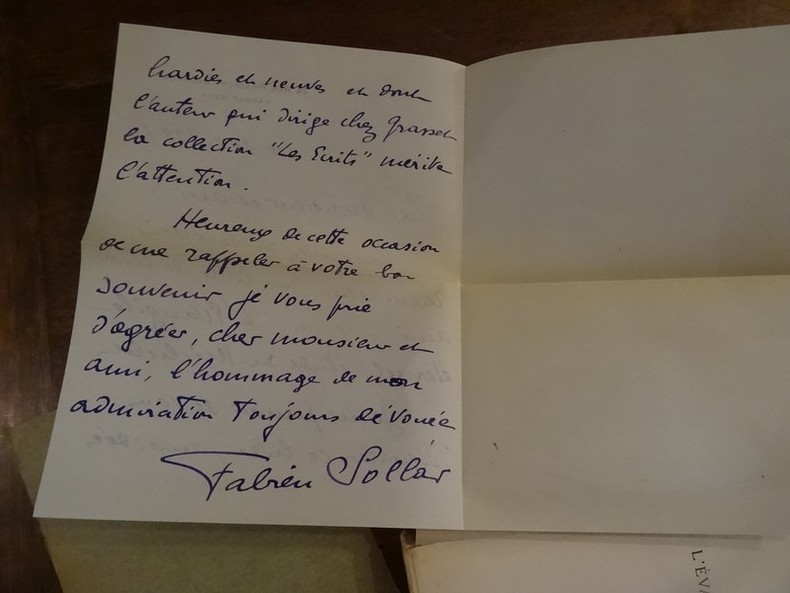 hardies et neuves et dont
l'auteur qui dirige chez Grasset
la collection "Les Ecrits" mérite
l'attention.
Heureux de cette occasion
de me rappeler à votre bon
souvenir je vous prie
d'agréer, cher monsieur et
ami, l'hommage de mon
admiration toujours dévouée
Fabien Sollar
L'ÉVA